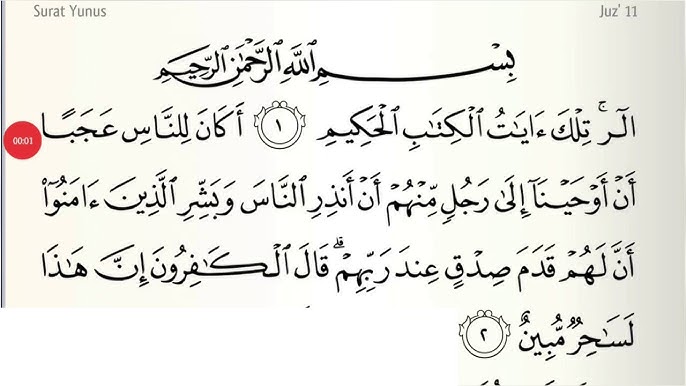 Surat Yunus Juz' 11
بِسْمِ ٱللَّهِ ٱلرَّحْمَٰنِ ٱلرَّحِيمِ
الٓر ۚ تِلْكَ ءَايَٰتُ ٱلْكِتَٰبِ ٱلْحَكِيمِ ١ أَكَانَ لِلنَّاسِ عَجَبًا
00:01
أَنْ أَوْحَيْنَآ إِلَىٰ رَجُلٍ مِّنْهُمْ أَنْ أَنذِرِ ٱلنَّاسَ وَبَشِّرِ ٱلَّذِينَ ءَامَنُوٓا۟
أَنَّ لَهُمْ قَدَمَ صِدْقٍ عِندَ رَبِّهِمْ ۗ قَالَ ٱلْكَٰفِرُونَ إِنَّ هَٰذَا
لَسَٰحِرٌ مُّبِينٌ ٢